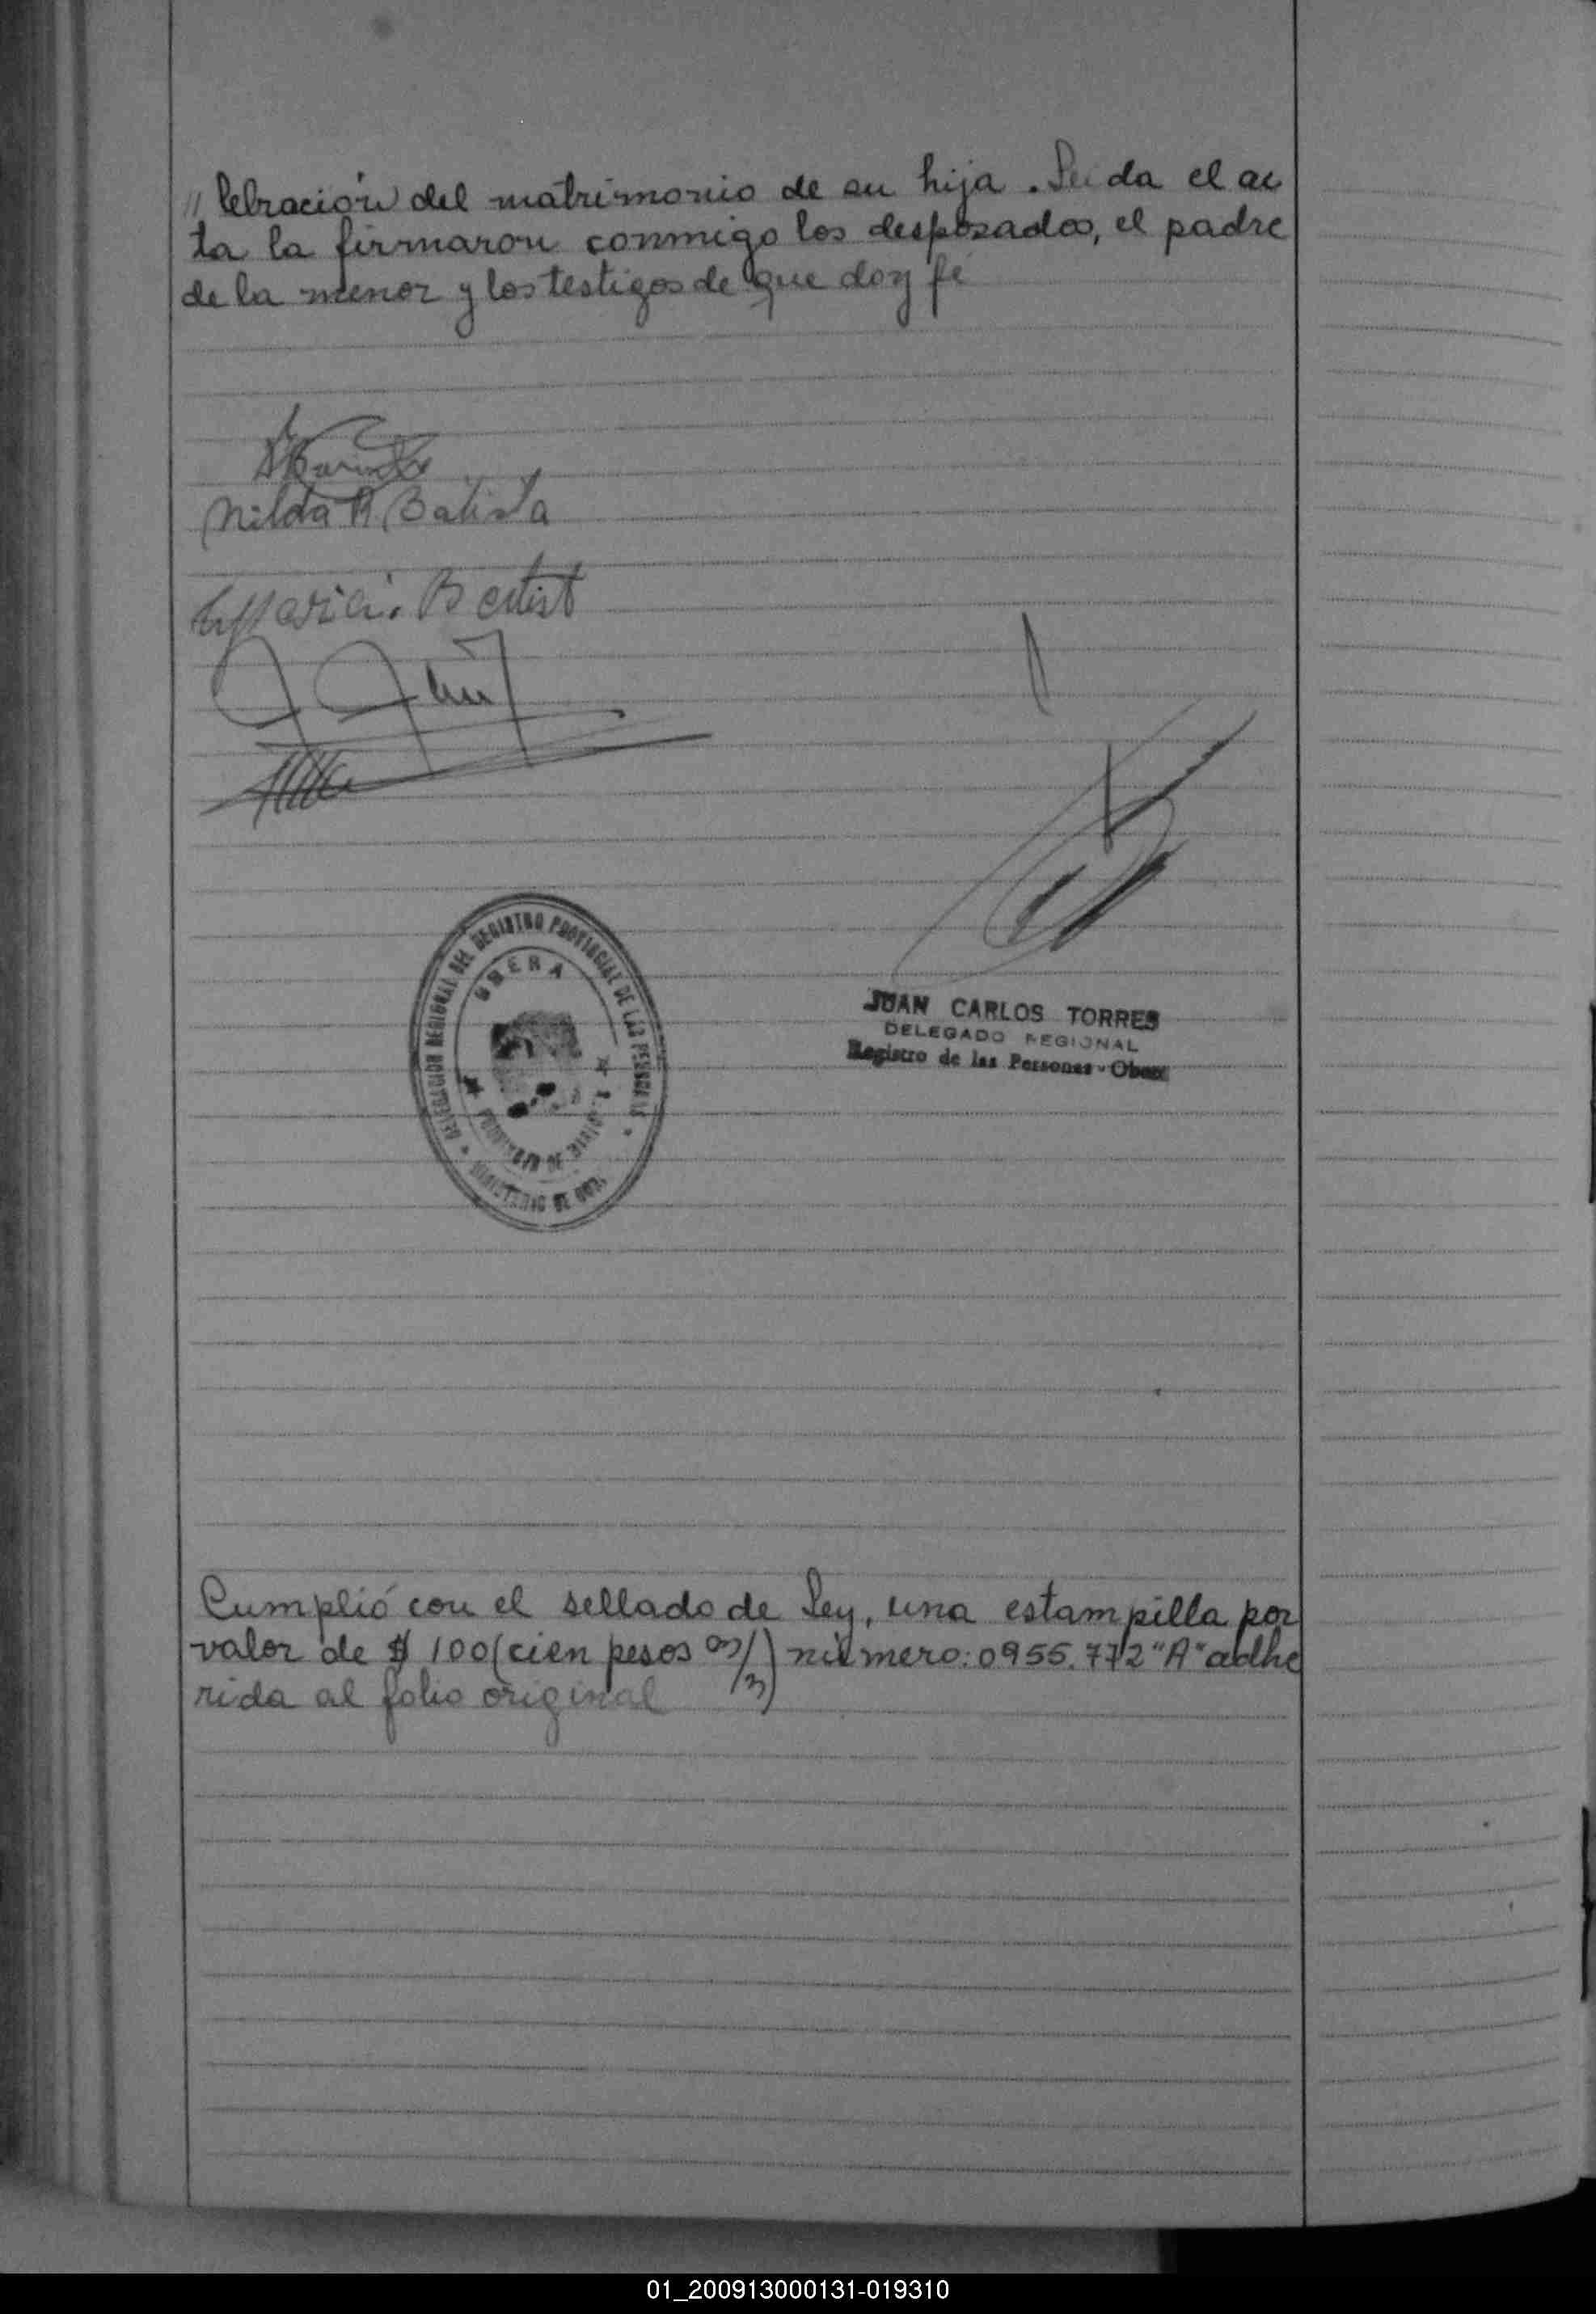 // lebración del matrimonio de su hija. Leida el ac
ta la firmaron conmigo los desposados, el padre
de la menor y los testigos de que doy fé
Nilda R. Batista
DELEGACION REGIONAL DEL REGISTRO PROVINCIAL DE LAS PERSONAS
OBERA
PROVINCIA DE
MINISTERIO DE GOB.
JUAN CARLOS TORRES
DELEGADO REGIONAL
Registro de las Personas - Obera
Cumplió con el sellado de Ley, una estampilla por
valor de $ 100 (cien pesos m/n) número: 0955.772 "A" adhe
rida al folio original
01_200913000131-019310